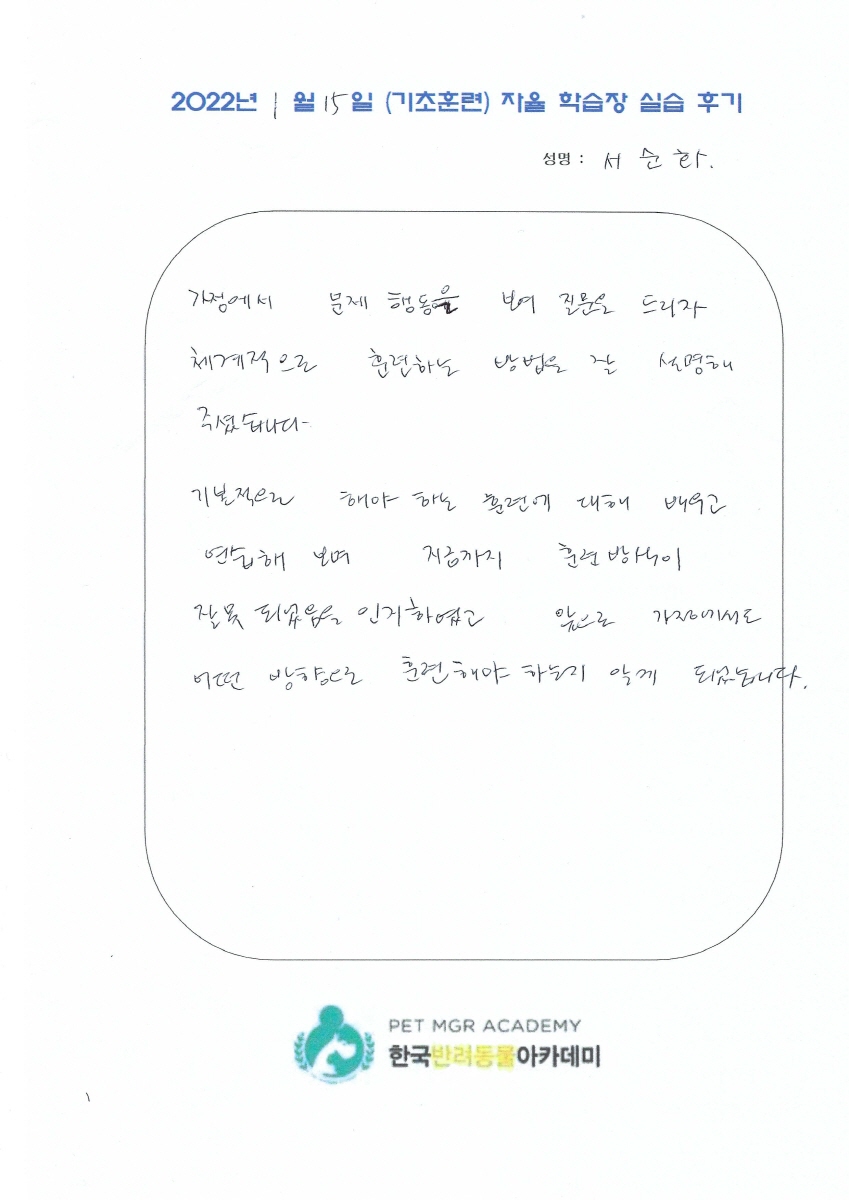 2022년 1월 15일 (기초훈련) 자율 학습장 실습 후기
성명 : 서순화.
가정에서 문제 행동을 보여 질문을 드리자
체계적으로 훈련하는 방법을 잘 설명해
주셨습니다-
기본적으로 해야 하는 훈련에 대해 배우고
연습해 보며 지금까지 훈련 방식이
잘못 되었음을 인지하였고 앞으로 가정에서도
어떤 방향으로 훈련해야 하는지 알게 되었습니다.
PET MGR ACADEMY
한국반려동물아카데미